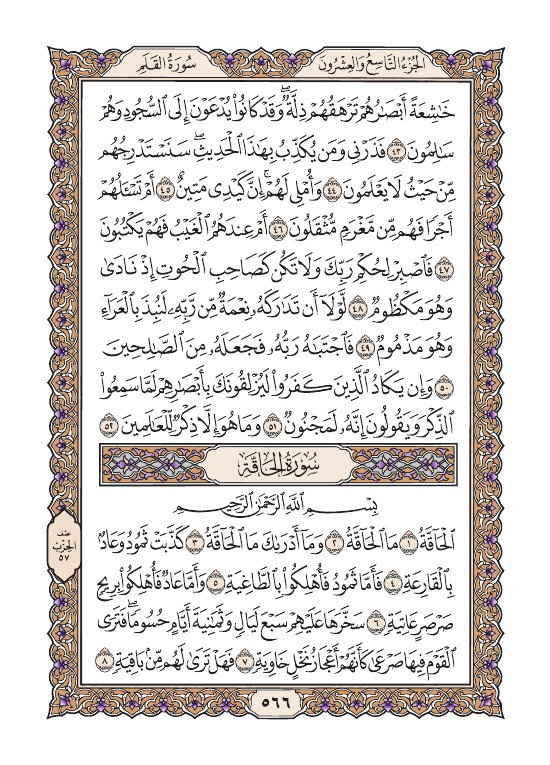 الجزء التاسع والعشرون
سورة القلم
خَٰشِعَةً أَبْصَٰرُهُمْ تَرْهَقُهُمْ ذِلَّةٌۖ وَقَدْ كَانُوا۟ يُدْعَوْنَ إِلَى ٱلسُّجُودِ وَهُمْ
سَٰلِمُونَ ٤٣ فَذَرْنِى وَمَن يُكَذِّبُ بِهَٰذَا ٱلْحَدِيثِۖ سَنَسْتَدْرِجُهُم
مِّنْ حَيْثُ لَا يَعْلَمُونَ ٤٤ وَأُمْلِى لَهُمْۚ إِنَّ كَيْدِى مَتِينٌ ٤٥ أَمْ تَسْـَٔلُهُمْ
أَجْرًا فَهُم مِّن مَّغْرَمٍ مُّثْقَلُونَ ٤٦ أَمْ عِندَهُمُ ٱلْغَيْبُ فَهُمْ يَكْتُبُونَ
٤٧ فَٱصْبِرْ لِحُكْمِ رَبِّكَ وَلَا تَكُن كَصَاحِبِ ٱلْحُوتِ إِذْ نَادَىٰ
وَهُوَ مَكْظُومٌ ٤٨ لَّوْلَآ أَن تَدَٰرَكَهُۥ نِعْمَةٌ مِّن رَّبِّهِۦ لَنُبِذَ بِٱلْعَرَآءِ
وَهُوَ مَذْمُومٌ ٤٩ فَٱجْتَبَٰهُ رَبُّهُۥ فَجَعَلَهُۥ مِنَ ٱلصَّٰلِحِينَ
٥٠ وَإِن يَكَادُ ٱلَّذِينَ كَفَرُوا۟ لَيُزْلِقُونَكَ بِأَبْصَٰرِهِمْ لَمَّا سَمِعُوا۟
ٱلذِّكْرَ وَيَقُولُونَ إِنَّهُۥ لَمَجْنُونٌ ٥١ وَمَا هُوَ إِلَّا ذِكْرٌ لِّلْعَٰلَمِينَ ٥٢
سورة الحاقة
بِسْمِ ٱللَّهِ ٱلرَّحْمَٰنِ ٱلرَّحِيمِ
ٱلْحَآقَّةُ ١ مَا ٱلْحَآقَّةُ ٢ وَمَآ أَدْرَىٰكَ مَا ٱلْحَآقَّةُ ٣ كَذَّبَتْ ثَمُودُ وَعَادٌۢ
بِٱلْقَارِعَةِ ٤ فَأَمَّا ثَمُودُ فَأُهْلِكُوا۟ بِٱلطَّاغِيَةِ ٥ وَأَمَّا عَادٌ فَأُهْلِكُوا۟ بِرِيحٍ
صَرْصَرٍ عَاتِيَةٍ ٦ سَخَّرَهَا عَلَيْهِمْ سَبْعَ لَيَالٍ وَثَمَٰنِيَةَ أَيَّامٍ حُسُومًاۖ فَتَرَى
ٱلْقَوْمَ فِيهَا صَرْعَىٰ كَأَنَّهُمْ أَعْجَازُ نَخْلٍ خَاوِيَةٍ ٧ فَهَلْ تَرَىٰ لَهُم مِّنۢ بَاقِيَةٍ ٨
نصف
الحزب
٥٧
٥٦٦